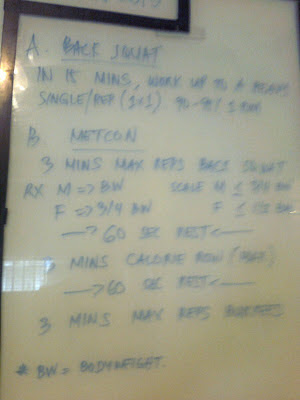 A. BACK SQUAT
IN 15 MINS, WORK UP TO A HEAVY
SINGLE/REP (1x1) 90-95% 1RM
B. METCON
3 MINS MAX REPS BACK SQUAT
RX M => BW SCALE M ≤ 3/4 BW
F => 3/4 BW F ≤ 1/2 BW
—> 60 SEC REST <—
3 MINS CALORIE ROW (MAX)
—> 60 SEC REST <—
3 MINS MAX REPS BURPEES
* BW = BODYWEIGHT.